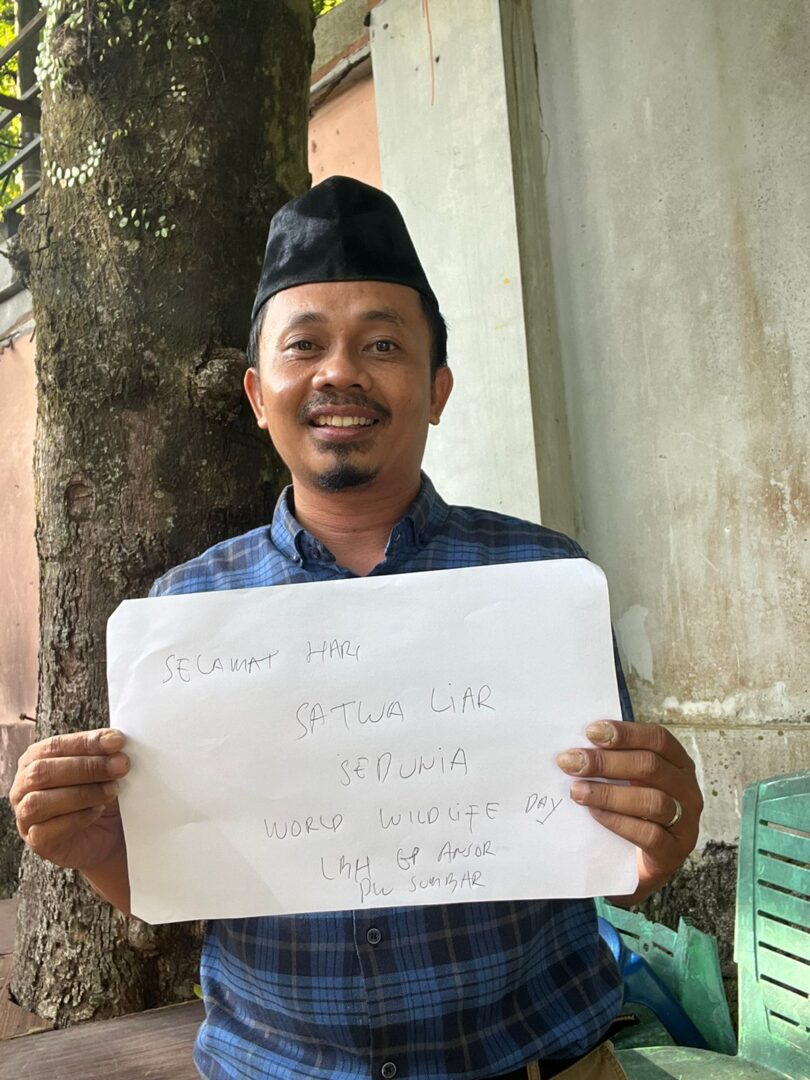 SELAMAT HARI
SATWA LIAR
SEDUNIA
WORLD WILDLIFE DAY
LBH GP ANSOR
PW SUMBAR